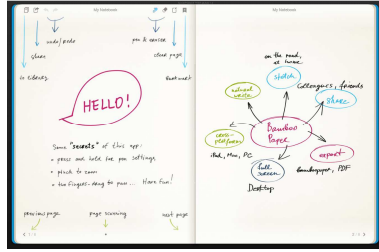 My Notebook
undo/redo
pen & eraser
share
clear page
to library
bookmark
HELLO!
Some "secrets" of this app:
• press and hold for pen settings
• pinch to zoom
• two fingers-drag to pan ... Have fun!
previous page
page scrolling
next page
My Notebook
on the road,
at home
sketch
natural
write
Colleagues, friends
share
Bamboo
Paper
cross-
platform
iPad, Mac, PC
full
screen
Desktop
export
bamboopaper, PDF